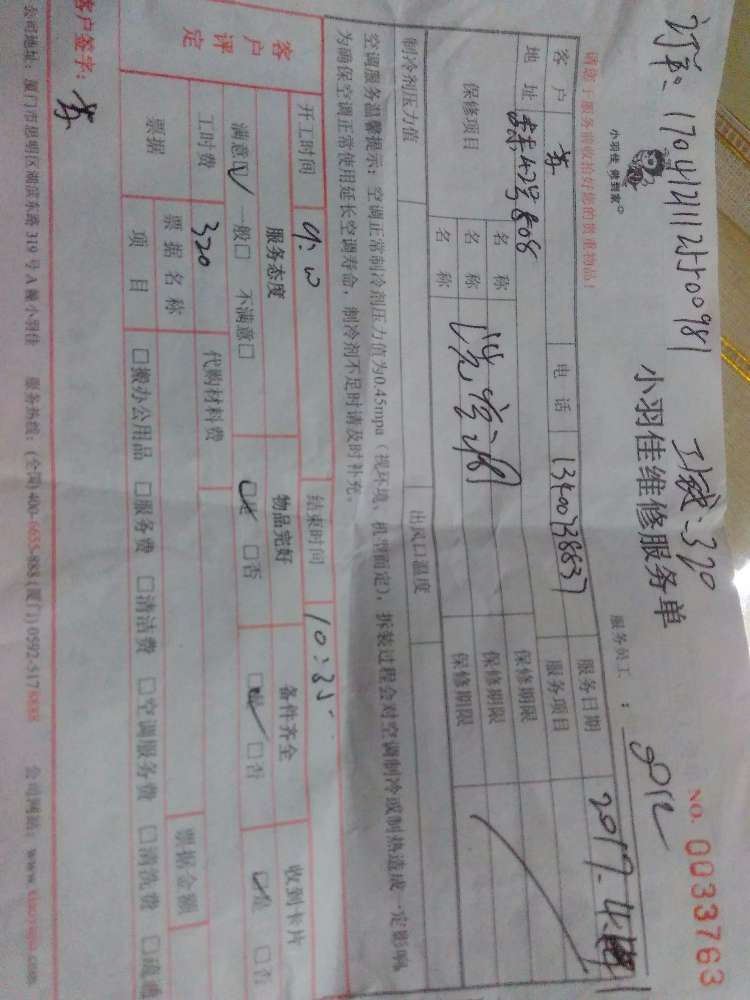 NO. 0033763
小羽佳 做到家
小羽佳维修服务单
服务员工：
请您于服务前收拾好您的贵重物品！
客户 电话 服务日期
地址 42号808 服务项目
保修项目 名称 保修期限
名称 洗空调 保修期限
名称 保修期限
制冷剂压力值 出风口温度
空调服务温馨提示：空调正常制冷剂压力值为0.45mpa（视环境、机型而定），拆装过程会对空调制冷或制热造成一定影响
为确保空调正常使用延长空调寿命，制冷剂不足时请及时补充。
开工时间 结束时间 10:35
客户评定 服务态度 物品完好 备件齐全 收到卡片
满意 一般 不满意 是 否 是 否 是 否
工时费 320 代购材料费
票据 票据名称 票据金额
项目 搬办公用品 服务费 清洁费 空调服务费 清洗费 疏通
客户签字：
公司地址：厦门市思明区湖滨东路319号A栋小羽佳 服务热线：(全国)400-6655-888 (厦门)0592-5178888 公司网站：